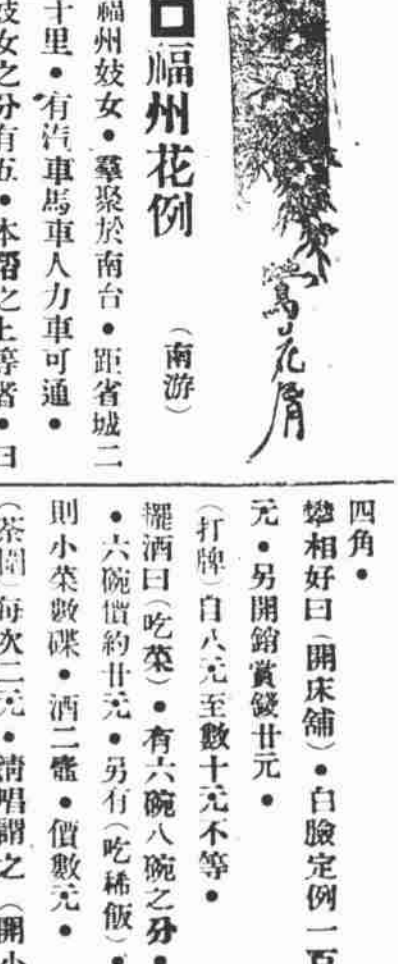 鶯花屑
福州花例
（南游）
福州妓女•羣聚於南台•距省城二
十里•有汽車馬車人力車可通•
妓女之分有五•本幫之上等者•曰
四角•
攀相好曰（開床舖）•白臉定例一百
元•另開銷賞錢廿元•
（打牌）自八元至數十元不等•
擺酒曰（吃菜）•有六碗八碗之分•
•六碗價約廿元•另有（吃稀飯）•
則小菜數碟•酒二壺•價數元•
（茶圍）每次二元•清唱謂之（開小